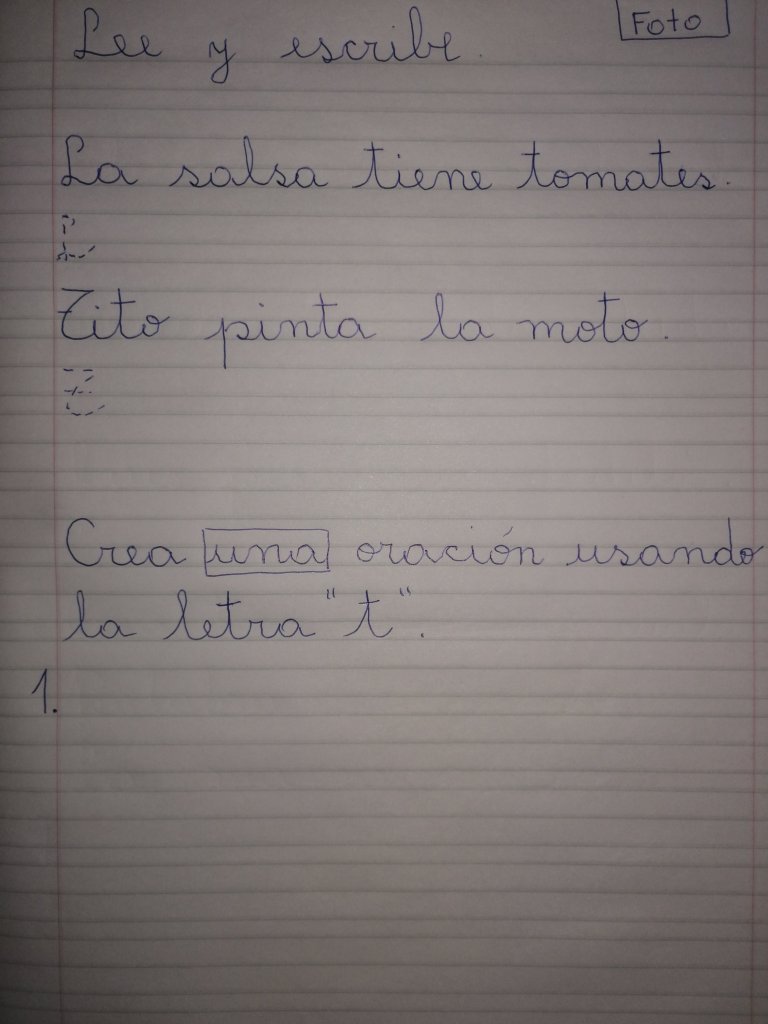 Foto
Lee y escribe.
La salsa tiene tomates.
L
Tito pinta la moto.
T
Crea una oración usando
la letra "t".
1.